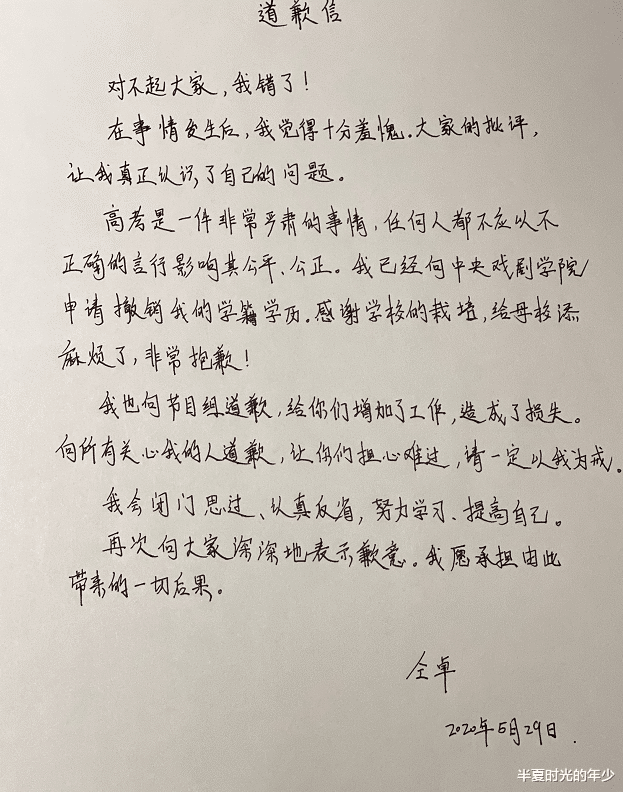 道歉信
对不起大家，我错了！
在事情发生后，我觉得十分羞愧.大家的批评，
让我真正认识了自己的问题。
高考是一件非常严肃的事情，任何人都不应以不
正确的言行影响其公平、公正。我已经向中央戏剧学院
申请撤销我的学籍学历.感谢学校的栽培，给母校添
麻烦了，非常抱歉！
我也向节目组道歉，给你们增加了工作，造成了损失。
向所有关心我的人道歉，让你们担心难过，请一定以我为戒.
我会闭门思过、认真反省，努力学习、提高自己。
再次向大家深深地表示歉意。我愿承担由此
带来的一切后果。
仝卓
2020年5月29日.
半夏时光的年少